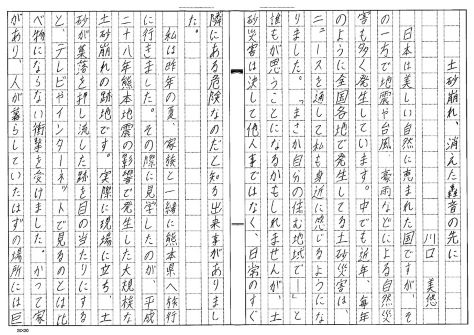 土砂崩れ、消えた轟音の先に
川口 美悠
日本は美しい自然に恵まれた国ですが、そ
の一方で地震や台風、豪雨などによる自然災
害も多く発生しています。中でも近年、毎年
のように全国各地で発生してる土砂災害は、
ニュースを通して私も身近に感じるようにな
りました。「まさか自分の住む地域で―」と
誰もが思うことになるかもしれませんが、土
砂災害は決して他人事ではなく、日常のすぐ
隣にある危険なのだと知る出来事がありまし
た。
私は昨年の夏、家族と一緒に熊本県へ旅行
に行きました。その際に見学したのが、平成
二十八年熊本地震の影響で発生した大規模な
土砂崩れの跡地です。実際に現場に立ち、土
砂が集落を押し流した跡を目の当たりにする
と、テレビやインターネットで見るのとは比
べ物にならない衝撃を受けました。かつて家
があり、人が暮らしていたはずの場所には巨
20×20